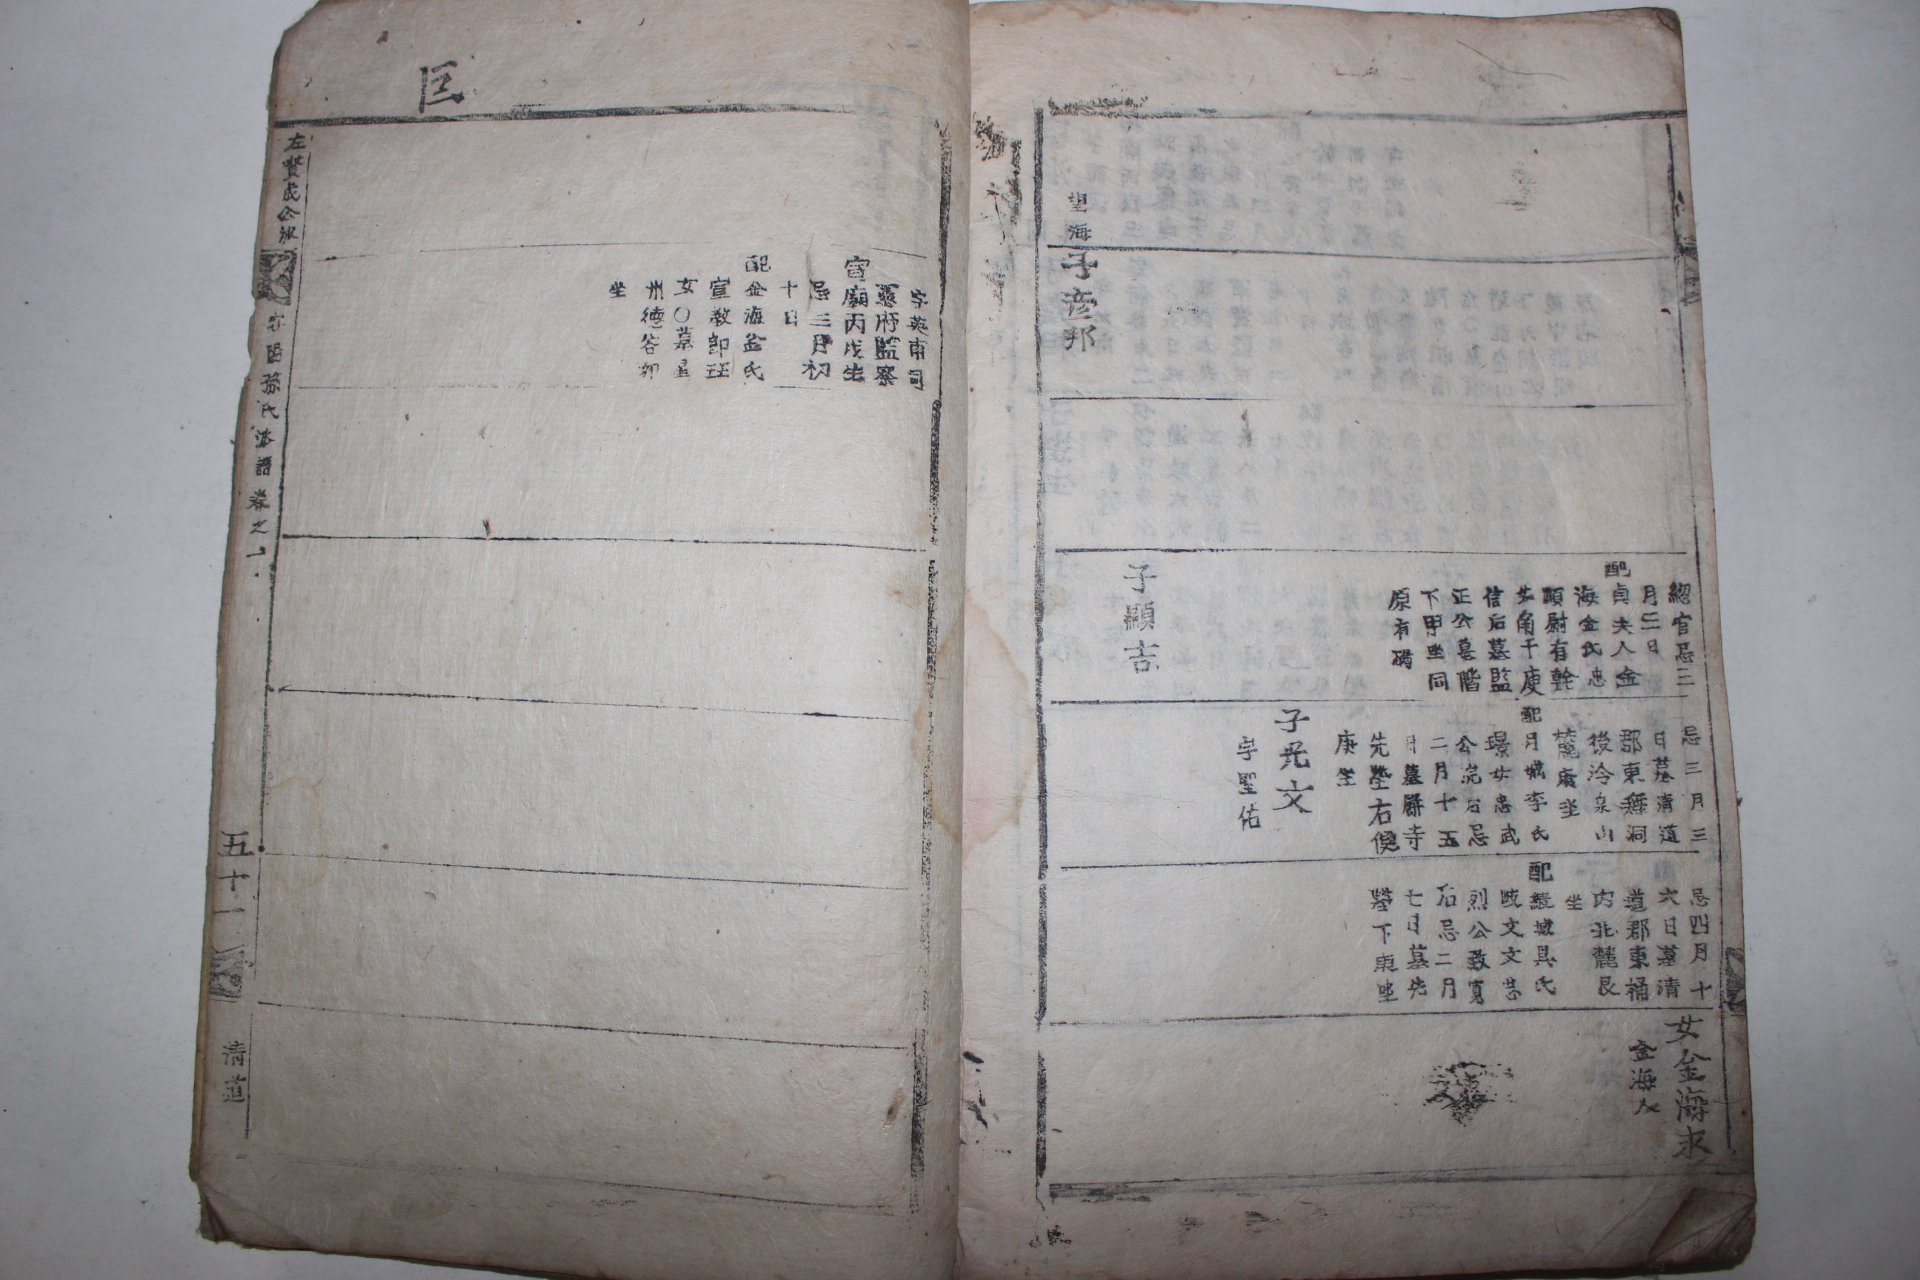 總官忌三
月三日
配
貞夫人金
海金氏忠
順尉有幹
女角干庾
信后墓監
正公墓階
下甲坐同
原有碣
子顯吉
忌三月三
日墓淸道
郡東種洞
後冷泉山
麓庚坐
配
月城李氏
璟女忠武
公浣后忌
二月十五
日墓
寺
先塋右
庚坐
子光文
字聖佑
忌四月十
六日墓淸
道郡東桶
內北麓艮
坐
配
綾城具氏
文文
烈公致寬
后忌二月
七日墓先
塋下庚坐
女金海求
金海人
望海
子彦邦
字英甫司
憲府監察
宣廟丙戌生
忌三月初
十日
配金海金氏
宣敎郞
女○墓
州德谷卯
坐
匡
左贊成公派
孫氏派譜卷之一
五十一
淸道